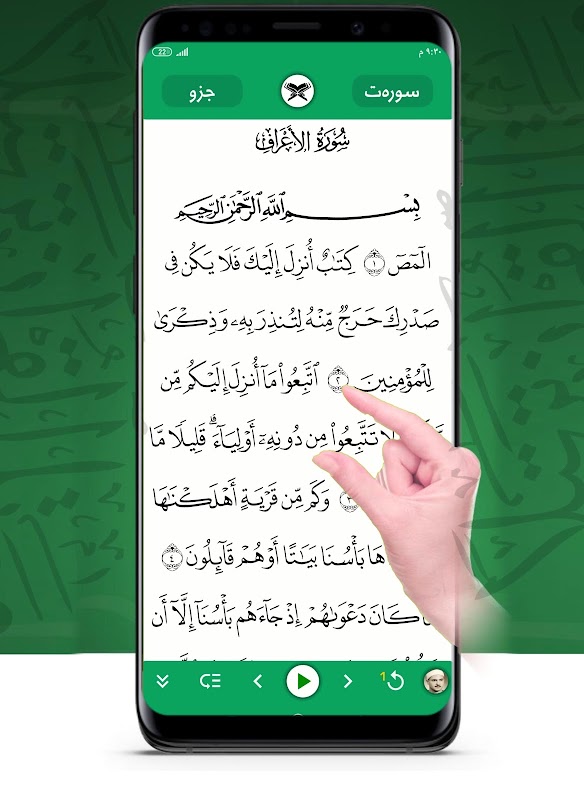 22
٩:٣٠ م
سورەت
جزو
سُورَةُ الأَعْرَافِ
بِسْمِ اللَّهِ الرَّحْمَٰنِ الرَّحِيمِ
الٓمٓصٓ ١ كِتَٰبٌ أُنزِلَ إِلَيْكَ فَلَا يَكُن فِى
صَدْرِكَ حَرَجٌ مِّنْهُ لِتُنذِرَ بِهِۦ وَذِكْرَىٰ
لِلْمُؤْمِنِينَ ٢ ٱتَّبِعُوا۟ مَآ أُنزِلَ إِلَيْكُم مِّن
لَا تَتَّبِعُوا۟ مِن دُونِهِۦٓ أَوْلِيَآءَ ۗ قَلِيلًا مَّا
٣ وَكَم مِّن قَرْيَةٍ أَهْلَكْنَٰهَا
هَا بَأْسُنَا بَيَٰتًا أَوْ هُمْ قَآئِلُونَ ٤
كَانَ دَعْوَىٰهُمْ إِذْ جَآءَهُم بَأْسُنَآ إِلَّآ أَن
1